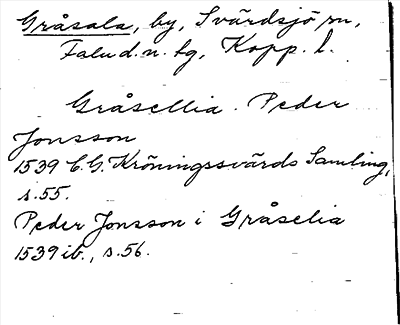 Gråsala, by, Svärdsjö sn,
Falu d.n. tg, Kopp. l.
Gråsellia. Peder
Jonsson
1539 C.G. Kröningssvärds Samling,
s. 55.
Peder Jonsson i Gråselia
1539 ib., s. 56.